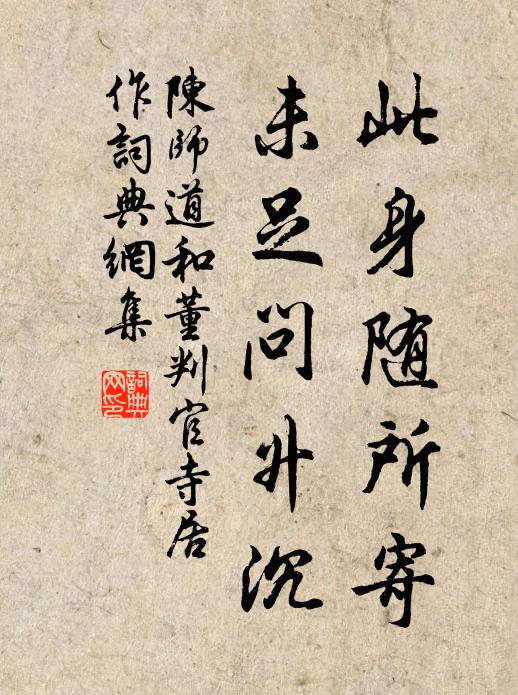 此身随所寄
未足問升沉
陳師道和董判官寺居
作詞典網集
詞典
网印